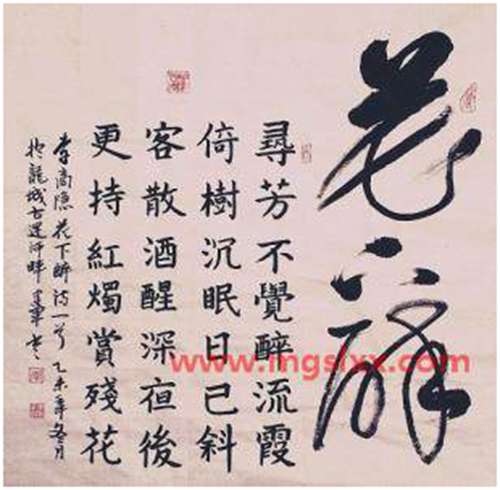 花下醉
尋芳不覺醉流霞
倚樹沉眠日已斜
客散酒醒深亱後
更持紅燭賞殘花
李商隐花下醉诗一首乙未年冬月
於龍城古運河畔
www.mgslxx.com